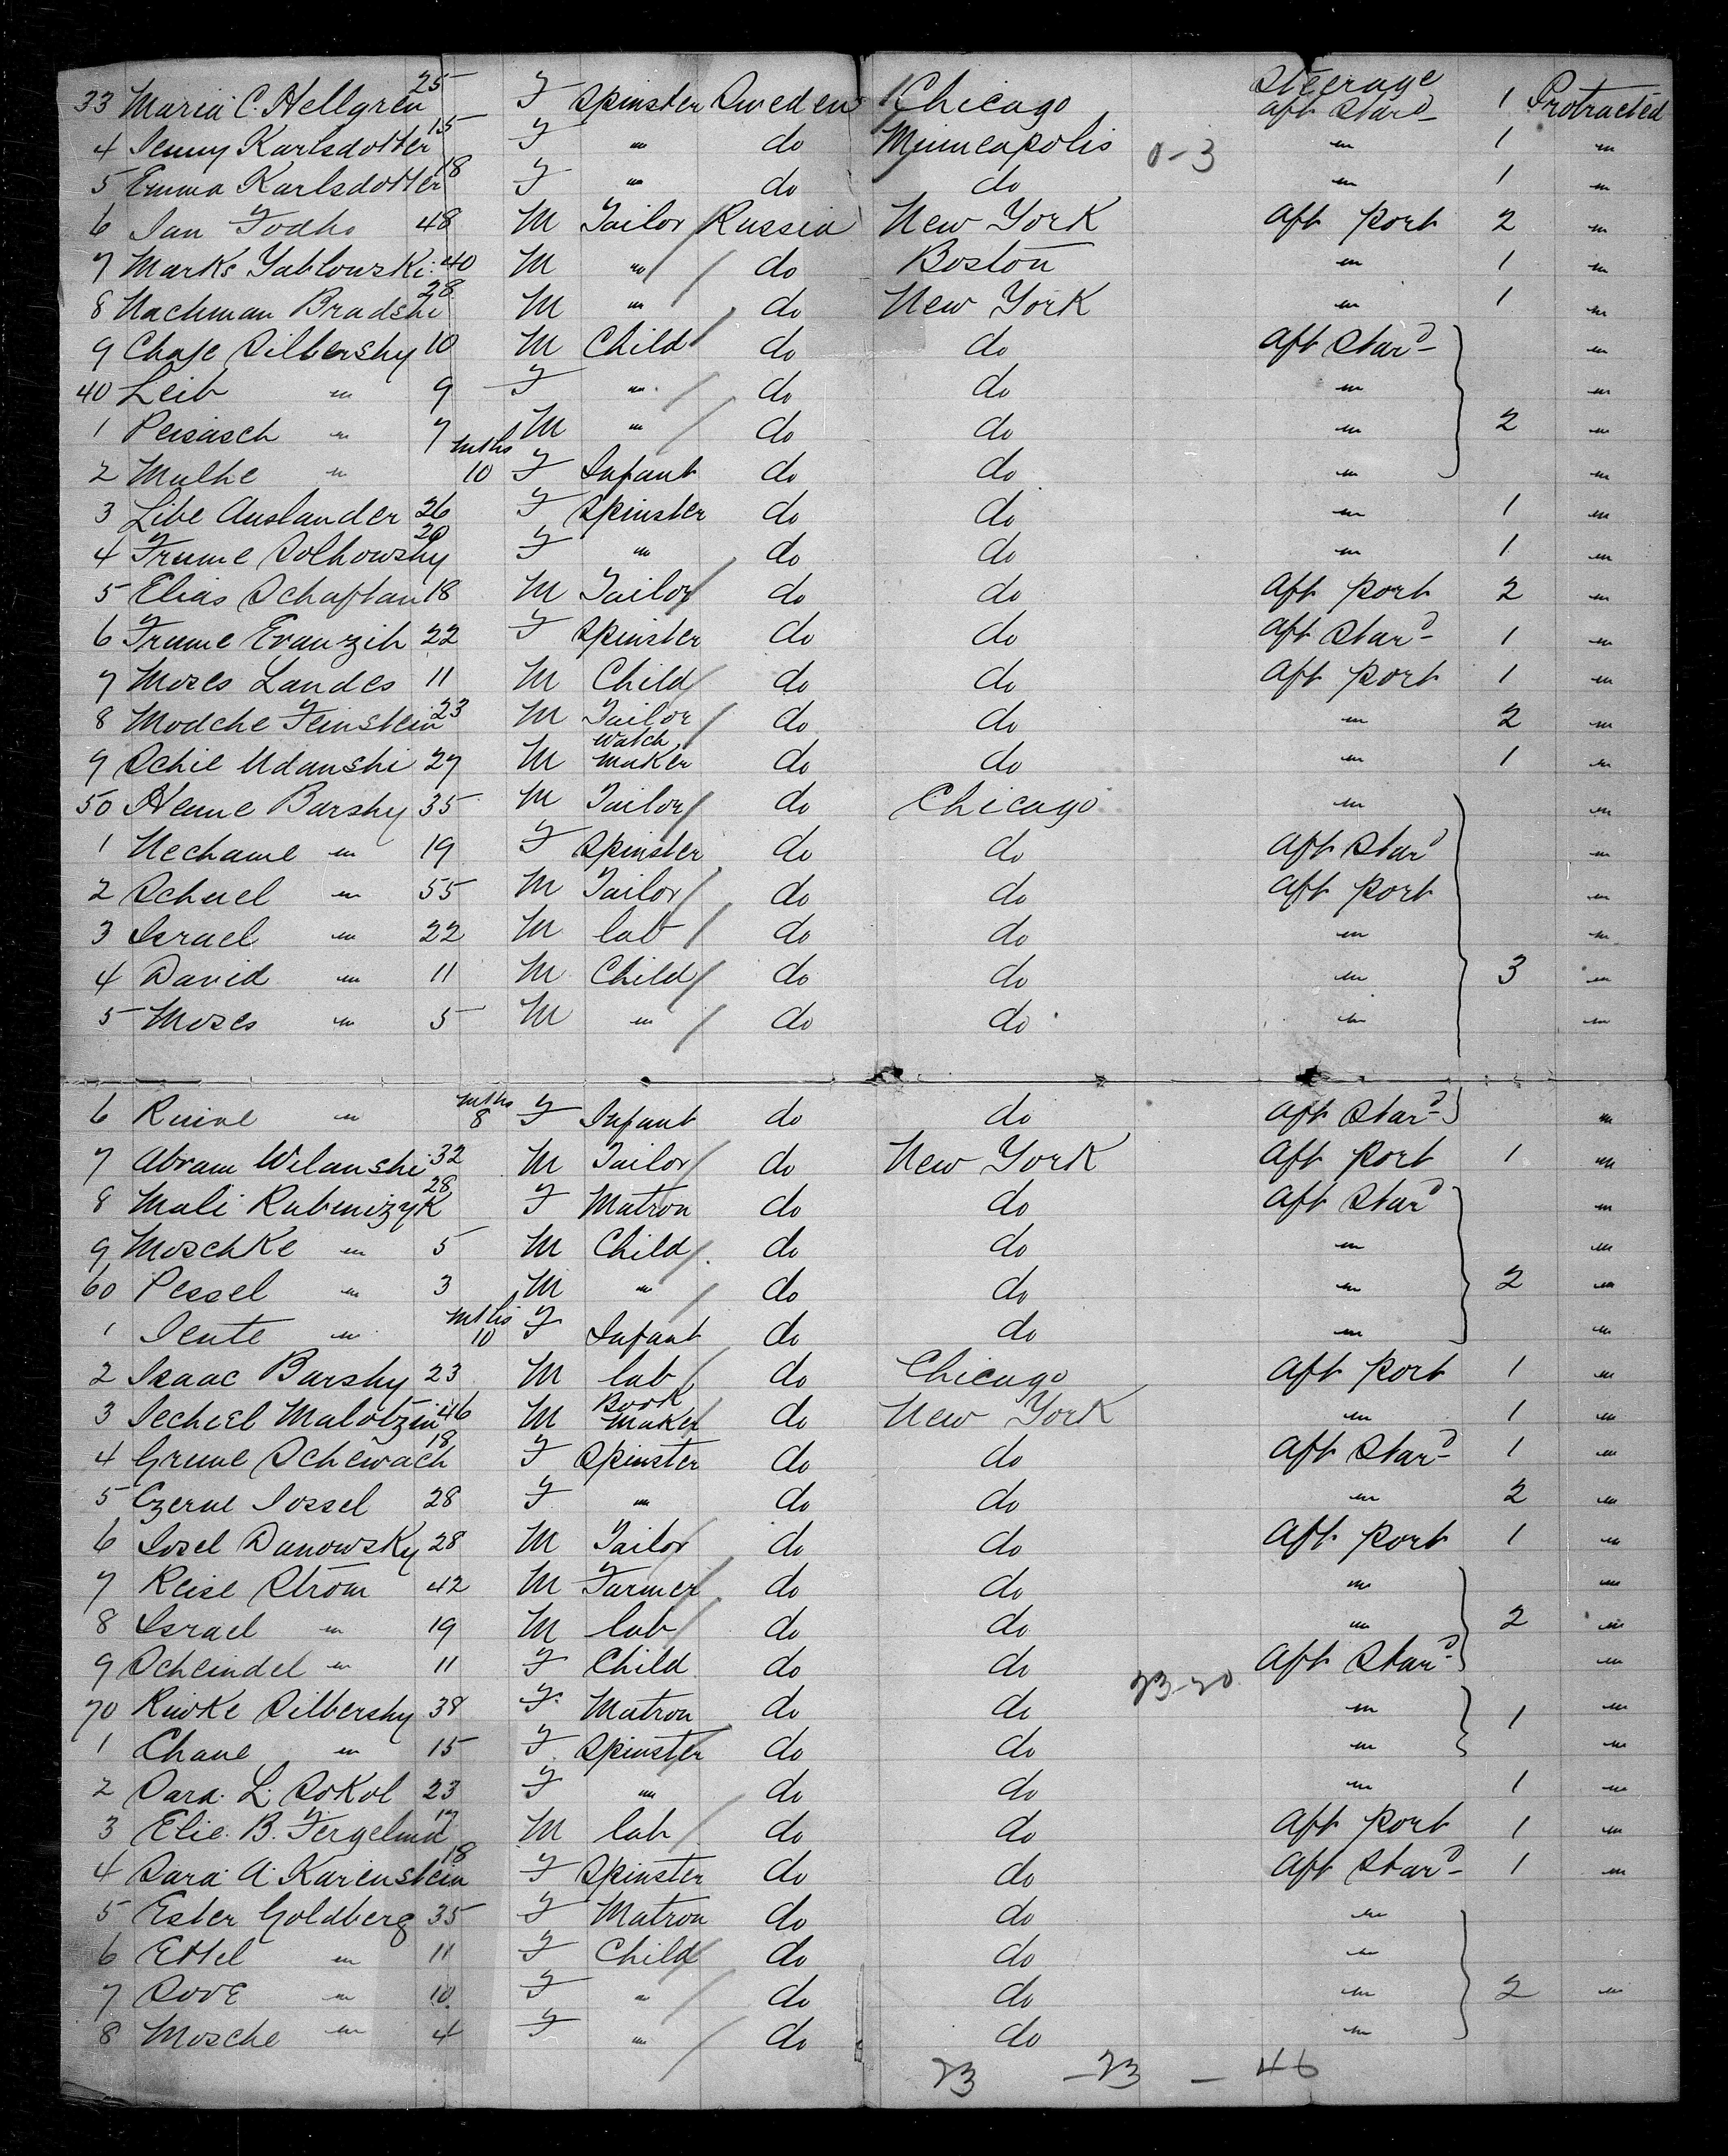 33 Maria C. Hellgren 25 F Spinster Sweden Chicago Steerage aft Star^d 1 Protracted
4 Jenny Karlsdotter 15 F " do Minneapolis 0-3 " 1 "
5 Emma Karlsdotter 18 F " do do " 1 "
6 Jan Fodho 48 M Tailor Russia New York Aft port 2 "
7 Marks Yablowski 40 M " do Boston " 1 "
8 Nachman Bradshi 28 M " do New York " 1 "
9 Chaje Silbershy 10 M Child do do Aft Star^d "
40 Leib " 9 F " do do " "
1 Peisasch " 7 M " do do " 2 "
2 Malke " mths 10 F Infant do do " "
3 Libe Auslander 26 F Spinster do do " 1 "
4 Frume Solhowshy 20 F " do do " 1 "
5 Elias Schaftan 18 M Tailor do do Aft port 2 "
6 Frume Evanzih 22 F Spinster do do Aft Star^d 1 "
7 Moses Landes 11 M Child do do Aft port 1 "
8 Modche Feinstein 23 M Tailor do do " 2 "
9 Schie Udanshi 27 M Watch Maker do do " 1 "
50 Henne Barshy 35 M Tailor do Chicago " "
1 Nechame " 19 F Spinster do do Aft Star^d "
2 Schuel " 55 M Tailor do do Aft port "
3 Israel " 22 M lab do do " "
4 David " 11 M Child do do " 3 "
5 Moses " 5 M " do do " "
6 Ruine " mths 8 F Infant do do Aft Star^d "
7 Abram Wilanshi 32 M Tailor do New York Aft port 1 "
8 Mali Rubenizyk 28 F Matron do do Aft Star^d "
9 Moschke " 5 M Child do do " "
60 Pessel " 3 M " do do " 2 "
1 Jente " mths 10 F Infant do do " "
2 Isaac Barshy 23 M lab do Chicago Aft port 1 "
3 Jecheel Malotzin 46 M Book Maker do New York " 1 "
4 Grune Schewach 18 F Spinster do do Aft Star^d 1 "
5 Czerne Jossel 28 F " do do " 2 "
6 Josel Danowsky 28 M Tailor do do Aft port 1 "
7 Reise Strom 42 M Farmer do do " "
8 Israel " 19 M lab do do " 2 "
9 Scheindel " 11 F Child do do Aft Star^d "
70 Riwke Silbershy 38 F Matron do do 23-20 " 1 "
1 Chane " 15 F Spinster do do " "
2 Sara L. Sokol 23 F " do do " 1 "
3 Elie B. Fergelman 17 M lab do do Aft port 1 "
4 Sara A. Karenstein 18 F Spinster do do Aft Star^d 1 "
5 Ester Goldberg 35 F Matron do do "
6 Ettel " 11 F Child do do "
7 Sove " 10 F " do do " 2 "
8 Mosche " 4 F " do do "
23 - 23 - 46